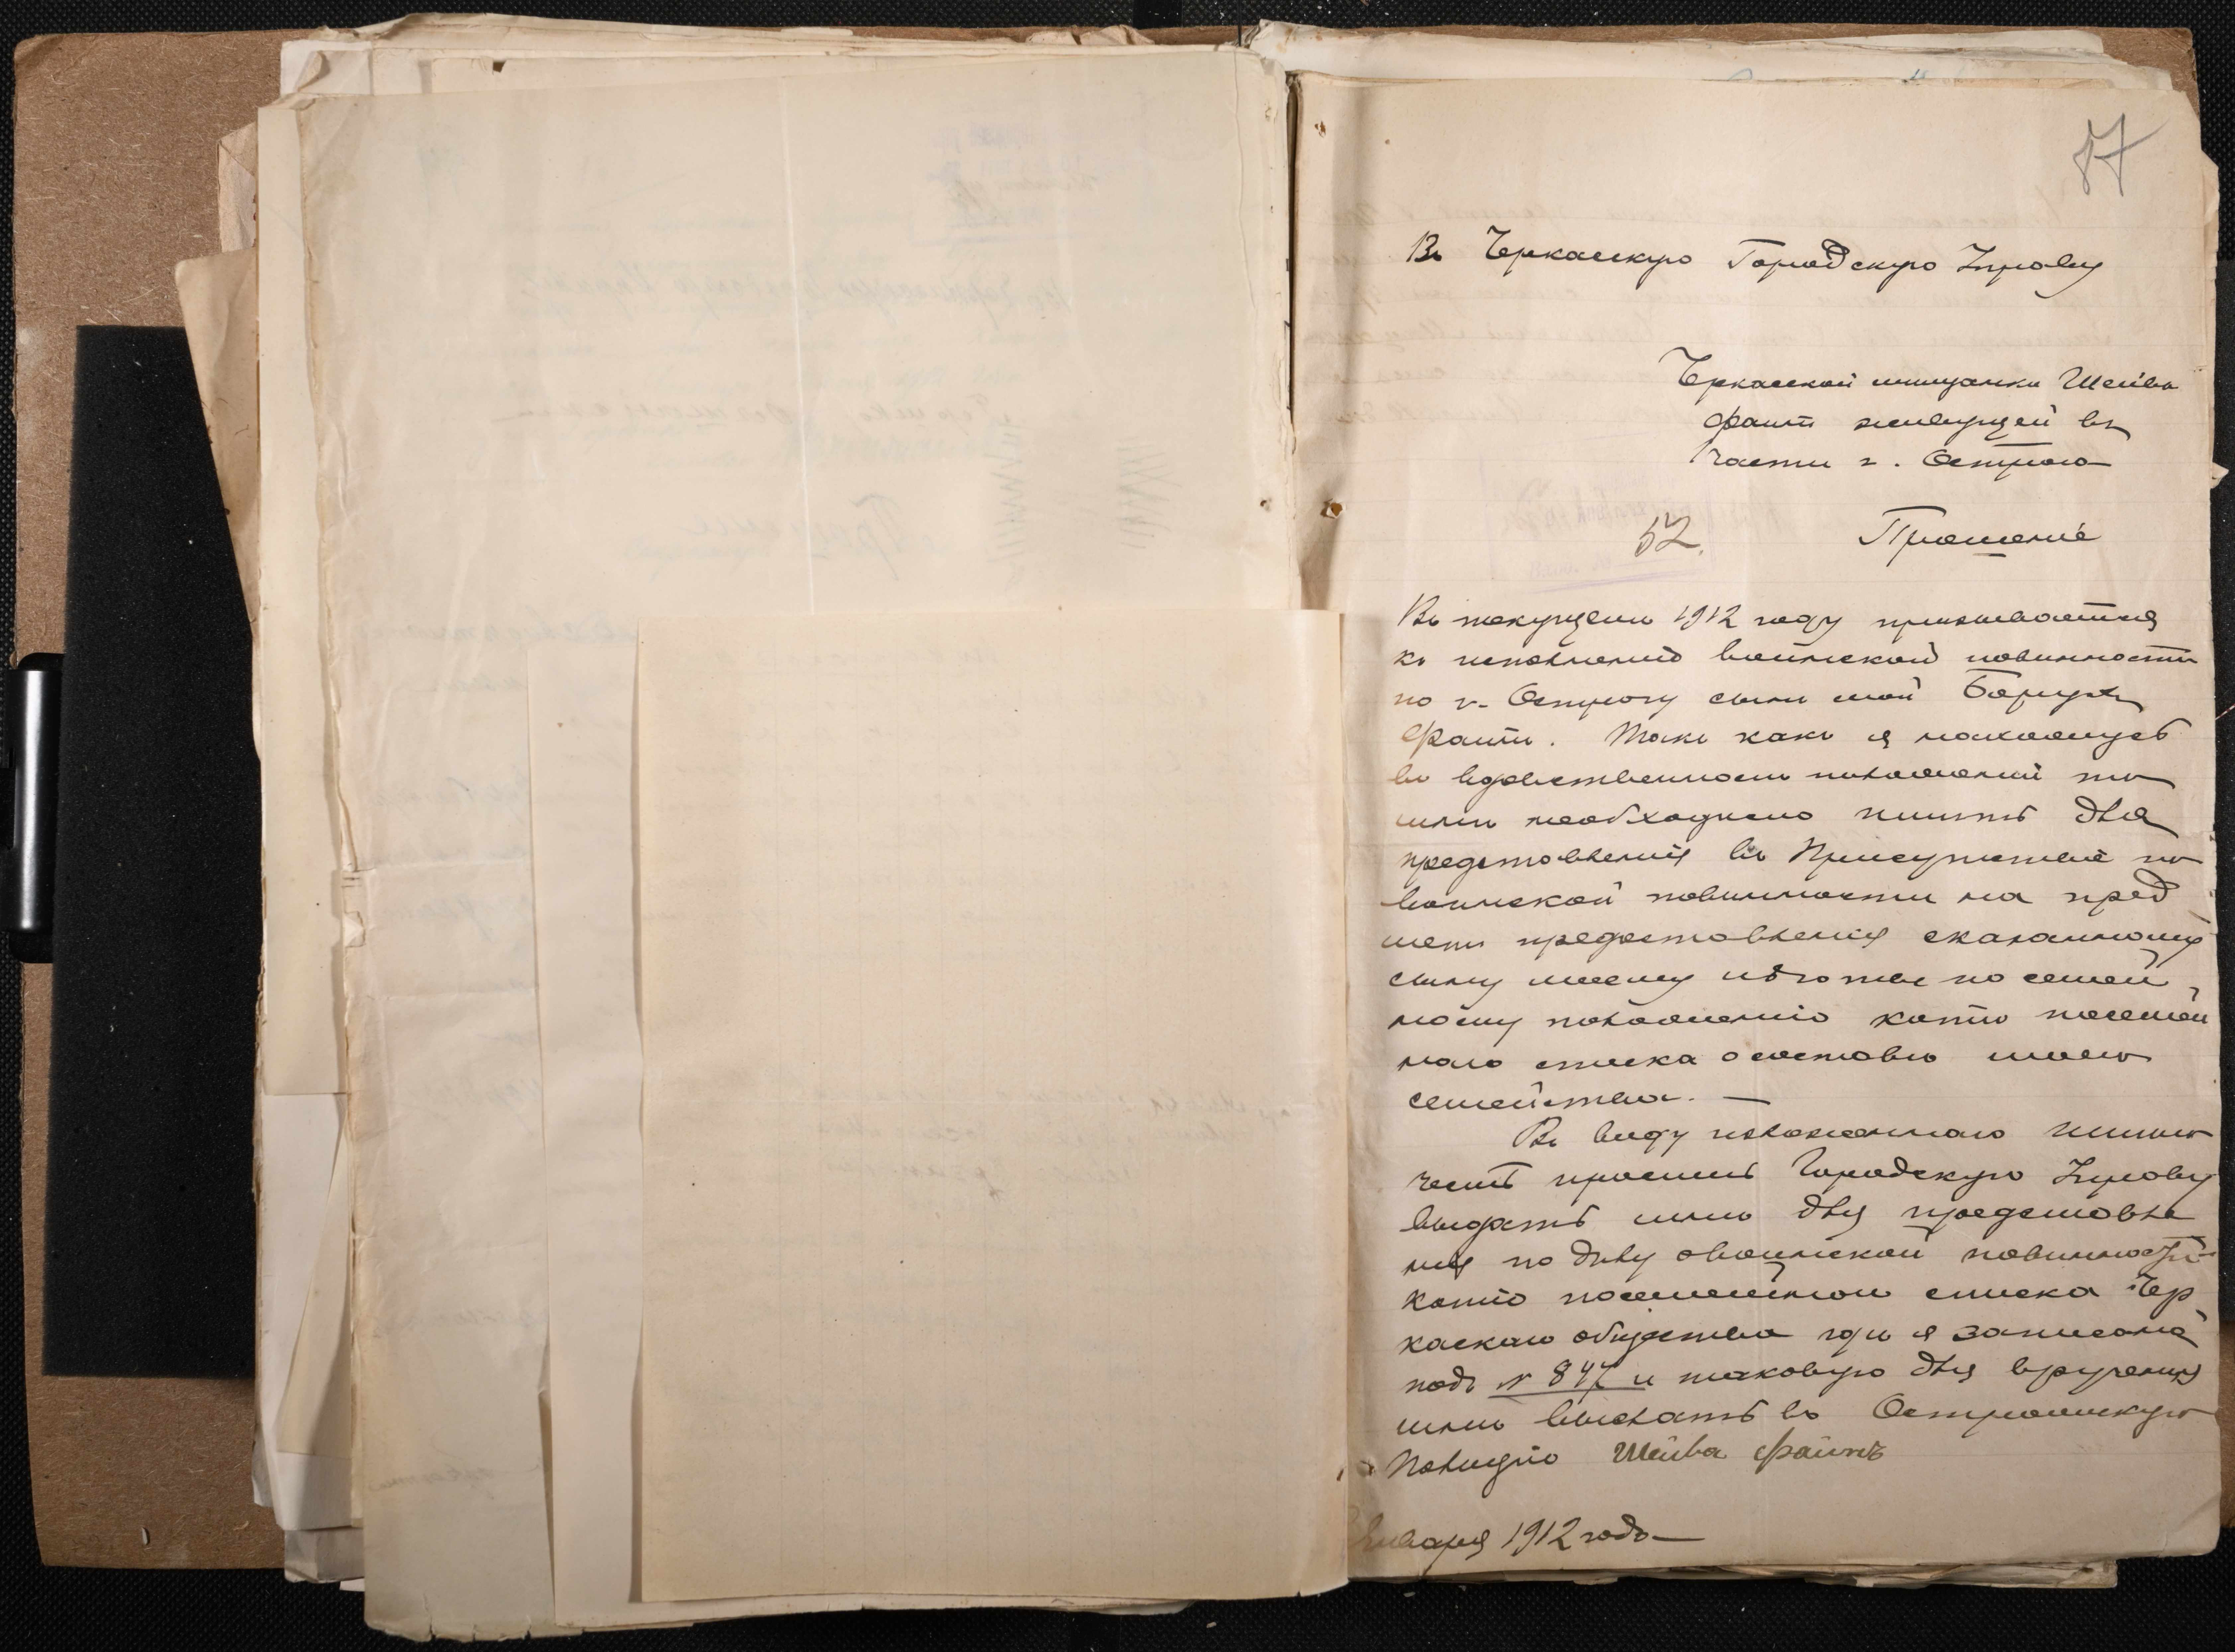 87
Въ Черкасскую Городскую Управу
Черкасской мѣщанки Шейва
Файтъ живущей въ
части г. Острога
52.
Прошеніе
Въ текущемъ 1912 году призывается
къ исполненію воинской повинности
по г. Острогу сынъ мой Борухъ
Файтъ. Такъ какъ я нахожусь
въ вдовственномъ положеніи то
мнѣ необходимо имѣть для
представленія въ Присутствіе по
воинской повинности на пред
метъ предоставленія сказанному
сыну моему льготы по семей
ному положенію копію посемей
наго списка о составѣ моего
семейства. —
Въ виду изложеннаго имѣю
честь просить Городскую Управу
выдать мнѣ для представле
нія по дѣлу о воинской повинности
копію посемейнаго списка Чер
каскаго общества гдѣ я записана
подъ № 847 и таковую для врученія
мнѣ выслать въ Острожскую
Полицію Шейва Файтъ
Января 1912 года —